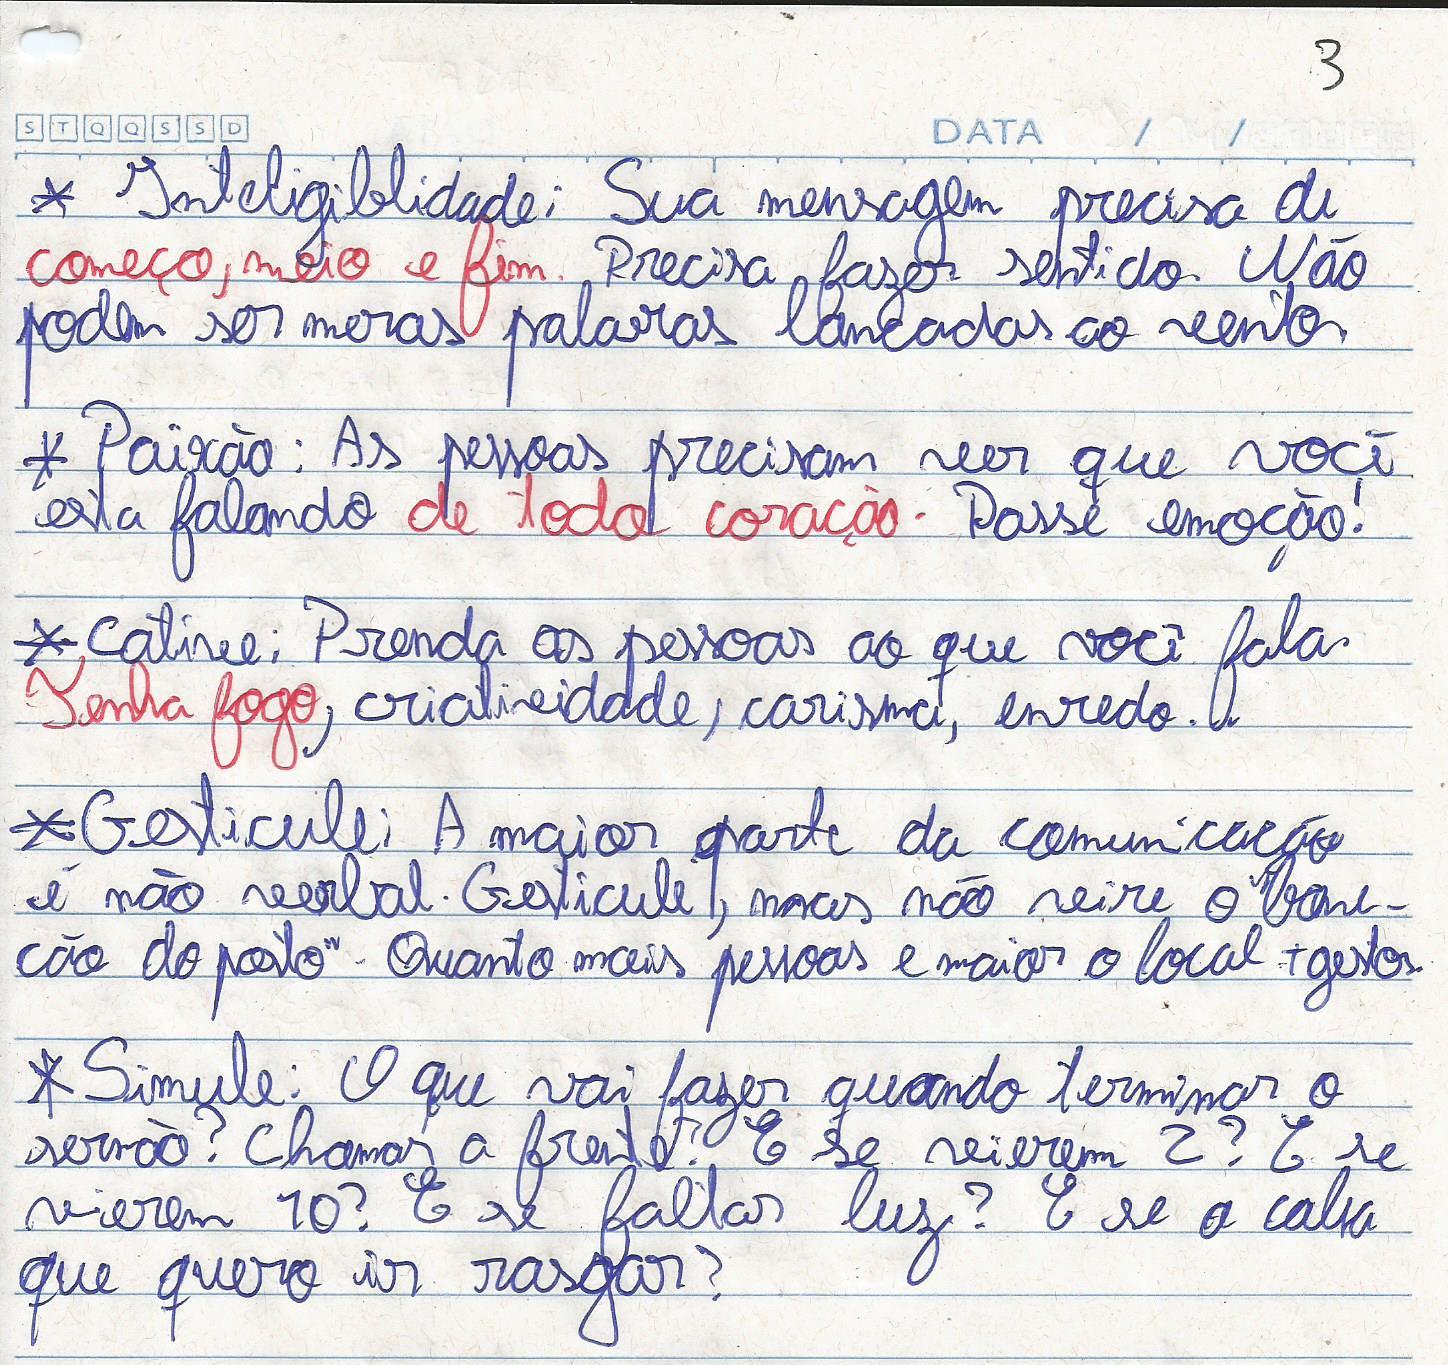 3
S T Q Q S S D DATA / /
* Inteligiblidade: Sua mensagem precisa de
começo, meio e fim. Precisa fazer sentido. Não
podem ser meras palavras lançadas ao vento.
* Paixão: As pessoas precisam ver que você
esta falando de todo coração. Passe emoção!
* Cative: Prenda as pessoas ao que você fala.
Tenha fogo, criatividade, carisma, enredo...
* Gesticule: A maior parte da comunicação
é não verbal. Gesticule, mas não vire o "bone-
cão do posto". Quanto mais pessoas e maior o local + gestos.
* Simule: O que vai fazer quando terminar o
sermão? Chamar a frente? E se vierem 2? E se
vierem 10? E se faltar luz? E se a calsa
que quero ir rasgar?